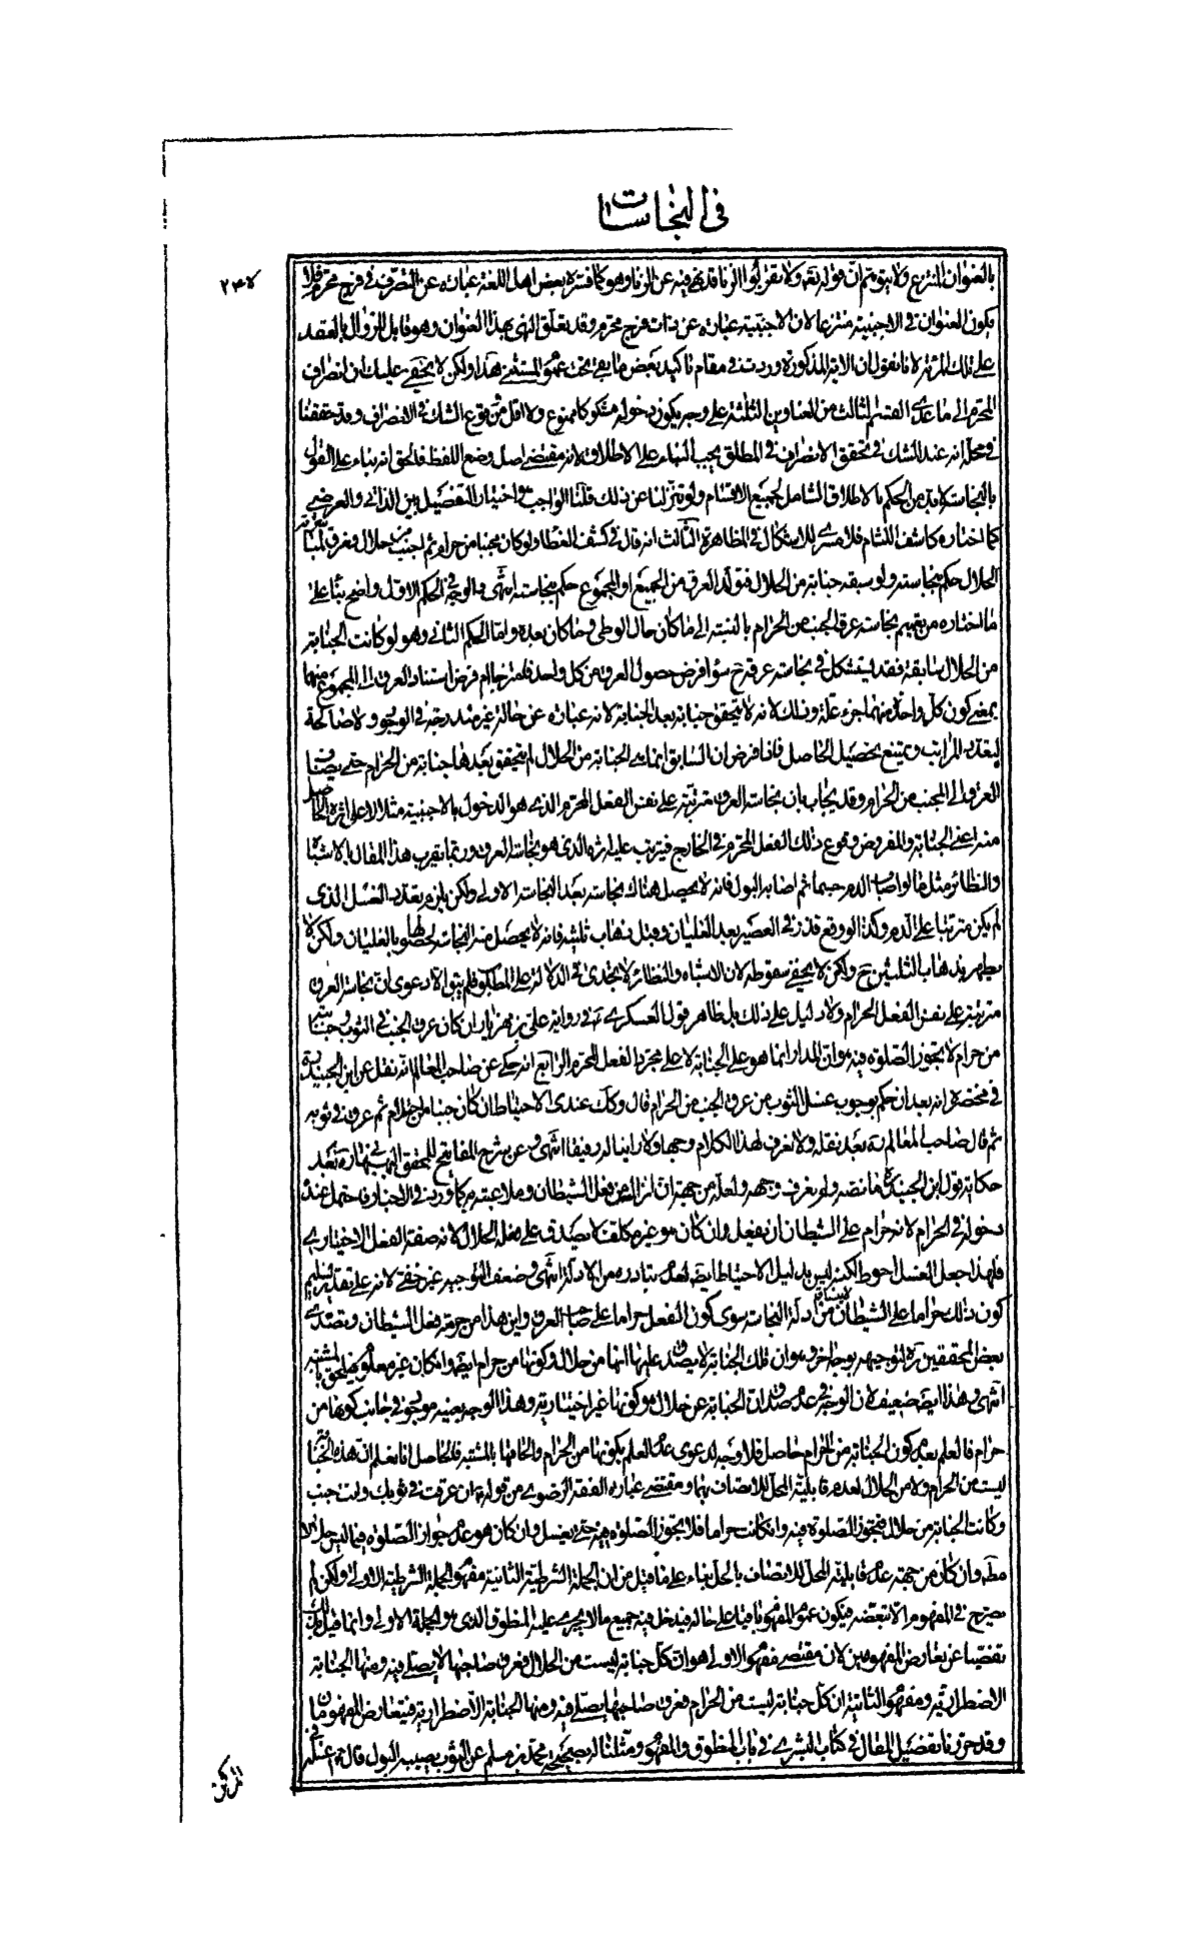 في النجاسات
۲۳۷
بالعنوان المنتزع ولا يتوهم ان قوله تعالى ولا تقربوا الزنا قد نهى فيه عن الزنا وهو كما فسّره بعض اهل اللغة عبارة عن التصرّف في فرج محرّم فلا
يكون العنوان في الاجنبية منتزعا لان الاجنبية عبارة عن ذات فرج محرم وقد تعلّق النهى بهذا العنوان وهو قابل للزوال بالعقد
على تلك المرئة لانا نقول ان الاية المذكورة وردت في مقام تاكيد بعض ما بقى تحت عموم المستثنى هذا ولكن لا يخفى عليك ان انصراف
المحرم الى ما عدى القسم الثالث من العناوين الثلثة على وجه يكون دخوله مشكوكا ممنوع ولا اقل من وقوع الشك في الانصراف وقد حققنا
في محله انه عند الشك في تحقق الانصراف في المطلق يجب البناء على الاطلاق لانه مقتضى اصل وضع اللفظ فالحق انه بناء على القول
بالنجاسة لا بد من الحكم بالاطلاق الشامل لجميع الاقسام ولو تنزلنا عن ذلك قلنا الواجب هو اختيار التفصيل بين الذاتي والعرضي
كما اختاره كاشف اللثام فلا مسرى للاشكال في المظاهرة الثالث انه قال في كشف الغطاء ولو كان مجنبا من حرام ثم اجنب من حلال وعرق لجنابة
الحلال حكم بنجاسته ولو سبقه جنابة من الحلال فتولد العرق من الجميع او المجموع حكم بنجاسته انتهى والوجه في الحكم الاول واضح بناء على
ما اختاره من تعميم نجاسة عرق الجنب من الحرام بالنسبة الى ما كان حال الوطى وما كان بعده واما الحكم الثاني وهو لو كانت الجنابة
من الحلال سابقة فقد يستشكل في نجاسة عرقه ح سواء فرض حصول العرق من كل واحد فلمتزجا ام فرض استناد العرق الى المجموع منهما
بمعنى كون كل واحد منهما جزء علة وذلك لانه لا يتحقق جنابة بعد الجنابة لانه عبارة عن حالة غير مندرجة في الوجود ولا صالحة
لتعدد المراتب ويمتنع تحصيل الحاصل فاذا فرض ان السابق انما هي الجنابة من الحلال لم يتحقق بعدها جنابة من الحرام حتى يضاف
العرق الى المجنب من الحرام وقد يجاب بان نجاسة العرق مترتبة على نفس الفعل المحرم الذي هو الدخول بالاجنبية مثلا لا على اثره الحاصل
منه اعنى الجنابة والمفروض وقوع ذلك الفعل المحرم في الخارج فيترتب عليه اثره الذي هو نجاسة العرق وربما يقرب هذا المقال بالاشباه
والنظائر مثل ما لو اصاب الدم جسما ثم اصابه البول فانه لا يحصل هناك نجاسة بعد النجاسة الاولى ولكن يلزم تعدد الغسل الذي
لم يكن مترتبا على الدم وكذا لو وقع قذر في العصير بعد الغليان وقبل ذهاب ثلثيه فانه لا يحصل منه النجاسة لحصولها بالغليان ولكن لا
يطهر بذهاب الثلثين ح ولكن لا يخفى سقوطه لان الاشباه والنظائر لا تجدى في الدلالة على المطلوب فلم يبق الا دعوى ان نجاسة العرق
مترتبة على نفس الفعل الحرام ولا دليل على ذلك بل ظاهر قول العسكري ع في رواية على بن مهزيار ان كان عرق الجنب في الثوب وجنابته
من حرام لا يجوز الصلوة فيه هو ان المدار انما هو على الجنابة لا على مجرد الفعل المحرم الرابع انه حكى عن صاحب المعالم انه نقل عن ابن الجنيد ره
في مختصره انه بعد ان حكم بوجوب غسل الثوب من عرق الجنب من الحرام قال وكك عندى الاحتياط ان كان جنبا من احتلام ثم عرق في ثوبه
ثم قال صاحب المعالم ره بعد نقله ولا نعرف لهذا الكلام وجها ولا راينا له رفيقا انتهى وعن شرح المفاتيح للمحقق البهبهاني ره بعد
حكاية قول ابن الجنيد ره ما نصه ولم يعرف وجهه ولعله من جهة ان انزاله من فعل الشيطان وملاعبته به كما ورد في الاخبار فاحتمل عنده
دخوله في الحرام لانه حرام على الشيطان ان يفعل وان كان هو غير مكلف لا يصدق على فعله الحلال لانه صفة الفعل الاختياري
فلهذا جعل الغسل احوط لكنه ليس بدليل الاحتياط ايضا لعدم تبادره من الادلة انتهى وضعف التوجيه غير خفى لانه على تقدير تسليم
كون ذلك حراما على الشيطان لا يستفاد من ادلة النجاسة سوى كون الفعل حراما على صاحب العرق واين هذا من حرمة فعل الشيطان وتصدى
بعض المحققين ره لتوجيهه بوجه اخر هو ان تلك الجنابة لا يصدق عليها انها من حلال وكونها من حرام ايضا وان كان غير معلوم فيلحق بالمشتبه
انتهى وهذا ايضا ضعيف لان الوجه في عدم صدق ان الجنابة عن حلال هو كونها غير اختيارية وهذا الوجه بعينه موجود في جانب كونها من
حرام فالعلم بعدم كون الجنابة من الحرام حاصل فلا وجه لدعوى عدم العلم بكونها من الحرام والحاقها بالمشتبه فالحاصل انا نعلم ان هذه الجنابة
ليست من الحرام ولا من الحلال لعدم قابلية المحل للاتصاف بهما ومقتضى عبارة الفقه الرضوى من قوله ع ان عرقت في ثوبك وانت جنب
وكانت الجنابة من حلال فتجوز الصلوة فيه وان كانت حراما فلا يجوز الصلوة فيه حتى يغسل وان كان هو عدم جواز الصلوة فيما ليس حلالا
مطلقا وان كان من جهة عدم قابلية المحل للاتصاف بالحل بناء على ما قيل من ان الجملة الشرطية الثانية مفهوم الجملة الشرطية الاولى ولكن لم
يصرح في المفهوم الا ببعضه فيكون عموم المفهوم باقيا على حاله فيدخل فيه جميع ما لا يجرى عليه المنطوق الذي هو الجملة الاولى وانما قيل بذلك
تفصيا عن تعارض المفهومين لان مقتضى مفهوم الاولى هو ان كل جنابة ليست من الحلال فعرق صاحبها لا يصلى فيه ومنها الجنابة
الاضطرارية ومفهوم الثانية ان كل جنابة ليست من الحرام فعرق صاحبها يصلى فيه ومنها الجنابة الاضطرارية فيتعارض المفهومان
وقد حررنا تفصيل المقال في كتاب البشرى في باب المنطوق والمفهوم ومثلنا له بصحيحة محمد بن مسلم عن الثوب يصيبه البول قال ع اغسله في
المركن